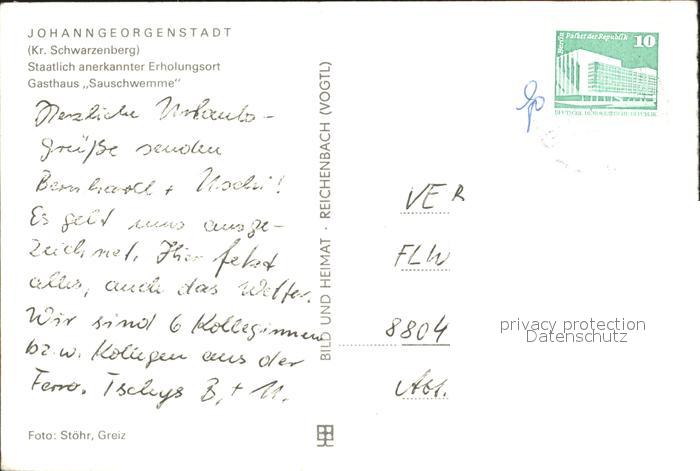 JOHANNGEORGENSTADT
(Kr. Schwarzenberg)
Staatlich anerkannter Erholungsort
Gasthaus „Sauschwemme“
Herzliche Urlaubs-
grüße senden
Bernhardt + Uschi!
Es geht uns ausge-
zeichnet. Hier fetzt
alles, auch das Wetter.
Wir sind 6 Kolleginnen
bzw. Kollegen aus der
Ferro. Tschüs B. + U.
Foto: Stöhr, Greiz
BILD UND HEIMAT · REICHENBACH (VOGTL)
Berlin Palast der Republik
10
DEUTSCHE DEMOKRATISCHE REPUBLIK
VER
FLW
8804
Abt.
privacy protection
Datenschutz